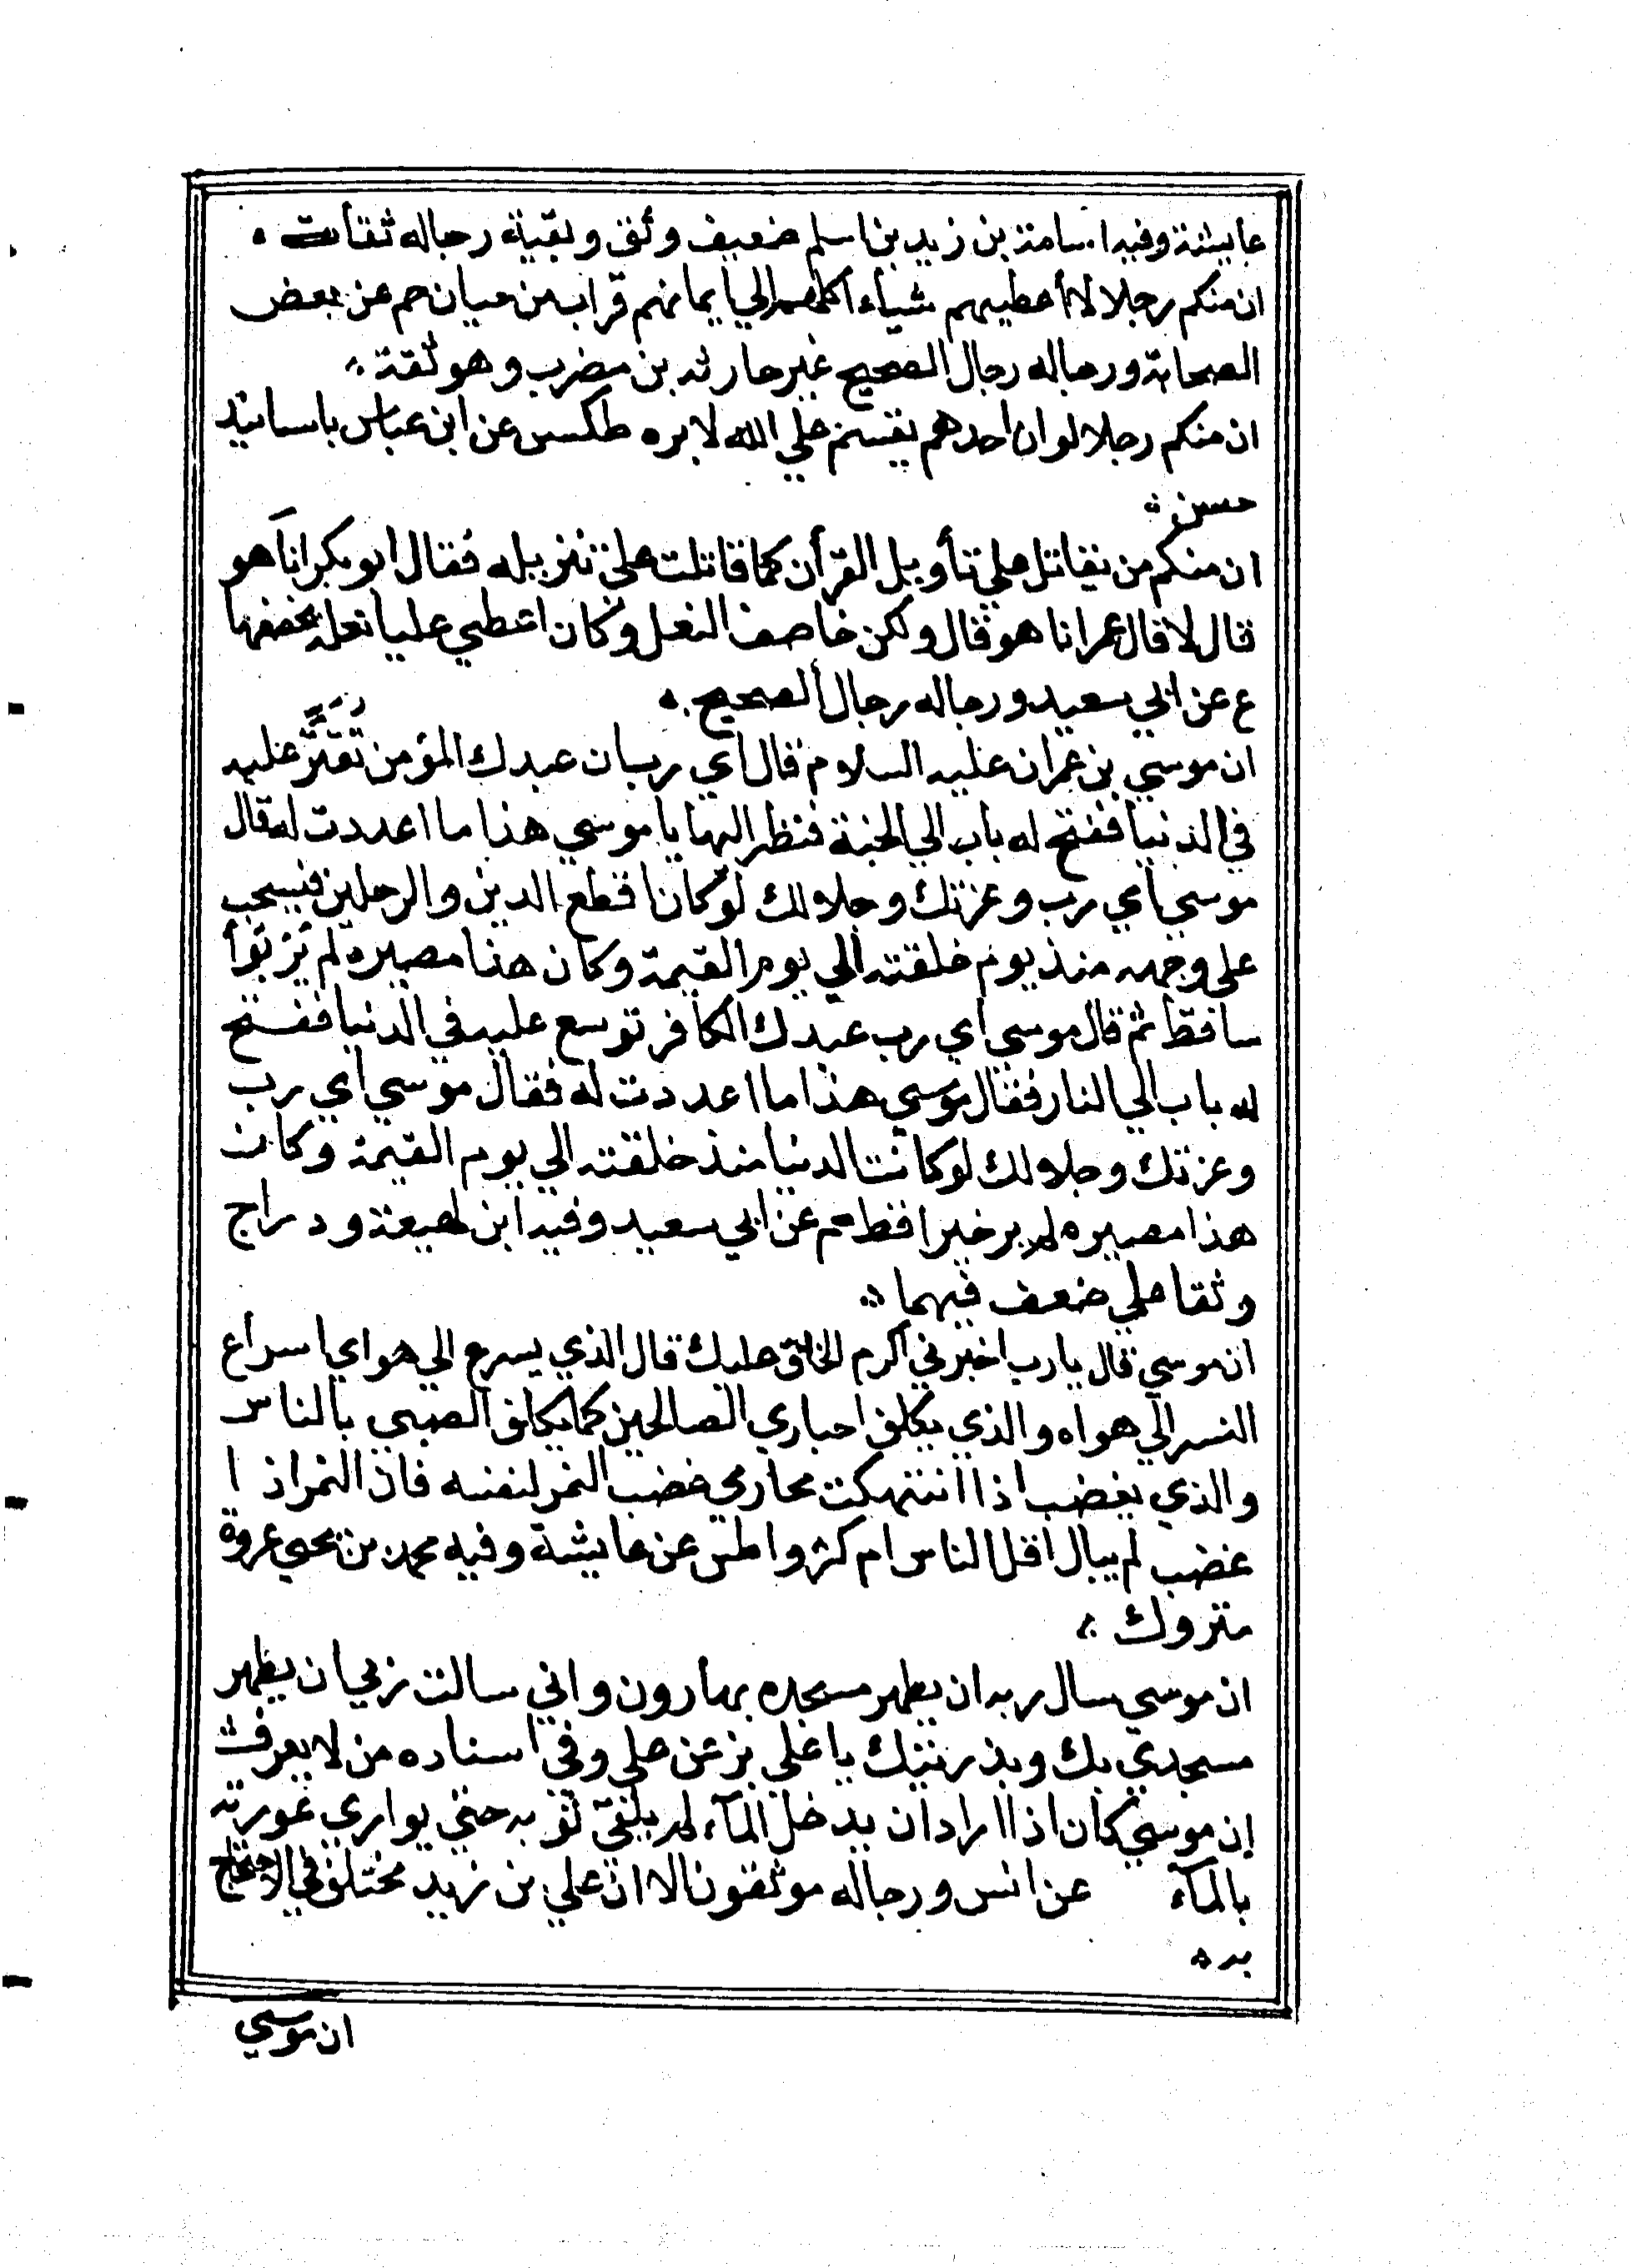 عايشة وفيه اسامة بن زيد بن اسلم ضعيف وثق وبقية رجاله ثقات
ان منكم رجالا لا أعطيهم شياء أكلهم الي ايمانهم فرات بن حيان حم عن بعض
الصحابة ورجاله رجال الصحيح غير حارثه بن مضرب وهو ثقة
ان منكم رجلا لو ان احدهم يقسم علي الله لابره طكس عن ابن عباس باسانيد
حسن
ان منكم من يقاتل علي تأويل القرأن كما قاتلت علي تنزيله فقال ابو بكر انا هو
قال لا قال عمر انا هو قال ولكن خاصف النعل وكان اعطي عليا نعله يخصفها
ع عن ابي سعيد ورجاله رجال الصحيح
ان موسي بن عمران عليه السلام قال أي رب ان عبدك المؤمن تقتر عليه
في الدنيا ففتح له باب الي الجنة فنظر اليها يا موسي هذا ما اعددت له قال
موسي أي رب وعزتك وجلالك لو كان اقطع الدين والرجلين فيسحب
علي وجهه منذ يوم خلقته الي يوم القيمة وكان هذا مصيره لم ير بؤأ
ساقط ثم قال موسي اي رب عبدك الكافر توسع عليه في الدنيا ففتح
له باب الي النار فقال موسي هذا ما اعددت له فقال موسي اي رب
وعزتك وجلالك لو كانت الدنيا منذ خلقته الي يوم القيمة وكان
هذا مصيره لم ير خيرا قط حم عن ابي سعيد وفيه ابن لهيعة ودراج
وثقا علي ضعف فيهما
ان موسي قال يا رب اخبرني اكرم الخلق عليك قال الذي يسرع الي هواي اسراع
النسر الي هواه والذي يكلف احباري الصالحين كما يكلف الصبي بالناس
والذي يغضب اذا انتهكت محارمي غضب النمر لنفسه فان النمر اذا
غضب لم يبال اقل الناس ام كثروا طس عن عايشة وفيه محمد بن يحيي عروة
متروك
ان موسي سال ربه ان يطهر مسجده بهارون واني سالت ربي ان يطهر
مسجدي بك وبذريتك يا علي بز عن علي وفي اسناده من لا يعرف
إن موسي كان اذا اراد ان يدخل المآء لم يلق ثوبه حتي يواري عورته
بالمآء عن انس ورجاله موثقون الا ان علي بن زيد مختلف في الاحتجاج
به
ان موسي